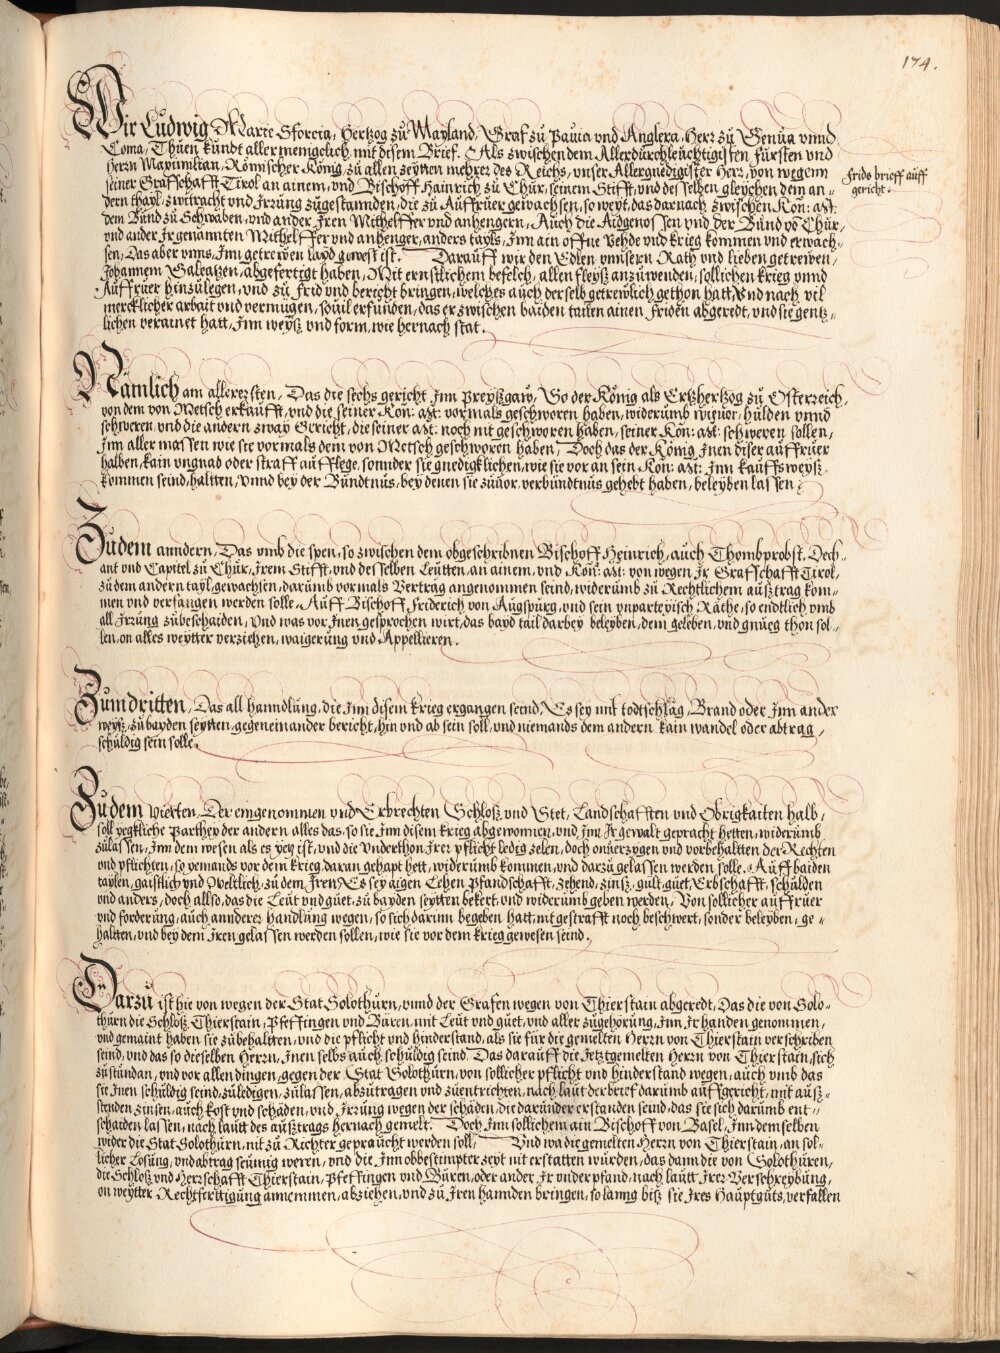 174.
Wir Ludwig Marie Sforcia, Hertzog zů Mayland, Graf zů Pauia vnd Anglera, Herr zů Genũa vnnd
Coma, Thůen kůndt allermenigclich mit disem Brief. Als zwischen dem Allerdůrchleůchtigisten Fürsten vnd
Herrn Maximilian, Römischer König, zů allen zeytten mehrer des Reichs, vnser Allergnedigister Herr, von wegenn
seiner Graffschafft Tirol an ainem, vnd Bischoff Hainrich zů Chůr, seinem Stifft, vnd desselben gleychen dem an-
dern thayl, zwitracht vnd Irrũng zůgestannden, die zů Aůffrůer gewachsen, so weyt, das darnach zwischen Kön: Mt:
dem Bũnd zů Schwaben, vnd ander Jren Mithelffer vnd anhengern, Aůch die Aidgenossen vnd der Bũnd vō Chũr,
vnd ander Jr genannten Mithelffer vnd anhenger, anders tayls, Jnn ain offne Vehde vnd krieg kommen vnd erwach-
sen, Das aber vnns, Jnn getrewen layd gewest ist. Daraůff wir den Edlen vnnsern Rath vnd lieben getrewen,
Johannem Galeatzen, abgefertigt haben, Mit ernstlichem befelch, allen fleyß anzůwenden, sollichen krieg vnnd
Aůffrůer hinzůlegen, vnd zů frid vnd bericht bringen, welches aůch derselb getrewlich gethon hatt, Vnd nach vil
mercklicher arbait vnd vermũgen, souil erfunden, das er zwischen baiden tailen ainen friden abgeredt, vnd sie gentz-
lichen verainet hatt, Jnn weyß vnd form, wie hernach stat.
Frids brieff aůff
gericht.
Nämlich am allerersten, Das die sechs gericht Jnn Preyßgaw, So der König als Ertzhertzog zů Osterreich,
von dem von Metsch erkaůfft, vnd die seiner Kön: Mt: vormals geschworen haben, widerũmb wieuor, hůlden vnnd
schweren, vnd die andern zway Gericht, die seiner Mt: noch nit geschworen haben, seiner Kön: Mt: schweren sollen,
Jnn aller massen wie sie vormals dem von Metsch geschworen haben, Doch das der König Jnen diser aůffrůer
halben, kain vngnad oder straff aůfflege, sonnder sie gnedigklichen, wie sie vor an sein Kön: Mt: Jnn kaůffsweyß
kommen seind, haltten, Vnnd bey der Bũndtnůs, bey denen sie zůuor verbũndtnůs gehebt haben, beleyben lassen.
Zůdem anndern, Das vmb die spen, so zwischen dem obgeschribnen Bischoff Heinrich, aůch Thombprobst, Dech-
ant vnd Capitel zů Chũr, Jrem Stifft, vnd desselben Leũtten, an ainem, vnd Kön: Mt: von wegen Jr Graffschafft Tirol,
zů dem andern tayl, gewachsen, darũmb vormals Vertrag angenommen seind, widerũmb zů Rechtlichem aůßtrag kom-
men vnd verfangen werden solle, Aůff Bischoff Friderich von Aůgspũrg, vnd sein vnparteyisch Räthe, so endtlich vmb
all Irrũng zůbeschaiden, Vnd was vor Jnen gesprochen wirt, das bayd tail darbey beleyben, dem geleben, vnd gnũeg thon sol-
len, on alles weytter verziehen, waigerũng vnd Appellieren.
Zũm dritten, Das all hanndlũng, die Jnn disem krieg ergangen seind, Es sey mit todtschlag, Brand oder Jnn ander
weyß, zů bayden seytten, gegeneinander bericht, hin vnd ab sein soll, vnd niemands dem andern kain wandel oder abtrag,
schũldig sein solle.
Zůdem vierten, Der eingenommen vnd Erbrechten Schloß vnd Stet, Landschafften vnd Obrigkaiten halb,
soll yegkliche Parthey der andern alles das, so sie Jnn disem krieg abgewonnen, vnd Jnn Jr gewalt gepracht hetten, widerũmb
zůlassen, Jnn dem wesen als es yetz ist, vnd die Vnderthon Jrer pflicht ledig zelen, doch onuerzygen vnd vorbehaltten der Rechten
vnd pflichten, so yemands vor dem krieg daran gehapt hett, widerũmb kommen, vnd darzů gelassen werden solle. Aůff baiden
taylen, gaistlich vnd Weltlich, zů dem Jren, Es sey aigen Lehen Pfandschafft, zehend, zinß, gũlt, gůet, Erbschafft, schũlden
vnd anders, doch allso, das die Leũt vnd gůet, zů bayden seytten bekert, vnd widerũmb geben werden, Von sollicher aůffrůer
vnd forderũng, aůch annderer handlũng wegen, so sich darinn begeben hatt, nit gestrafft noch beschwert, sonder beleyben, ge-
haltten, vnd bey dem Jren gelassen werden sollen, wie sie vor dem krieg gewesen seind.
Darzů ist hie von wegen der Stat Solothũrn, vnnd der Grafen wegen von Thierstain abgeredt, Das die von Solo-
thũrn die Schloß Thierstain, Pfeffingen vnd Bũren, mit Leũt vnd gůet, vnd aller zůgehörũng, Jnn Jr handen genommen,
vnd gemaint haben sie zůbehaltten, vnd die pflicht vnd hinderstand, als sie für die gemelten Herrn von Thierstain verschriben
seind, vnd das so dieselben Herrn, Jnen selbs aůch schũldig seind. Das daraůff die Jetztgemelten Herrn von Thierstain, sich
zůstũndan, vnd vor allen dingen, gegen der Stat Solothũrn, von sollicher pflicht vnd hinderstand wegen, aůch vmb das
sie Jnen schũldig seind, zůledigen, zůlassen, abzůtragen vnd zůentrichten, nach laůt der brief darũmb aůffgericht, mit aůß-
stenden zinsen, aůch kost vnd schäden, vnd Irrũng wegen der schäden, die darũnder erstanden seind, das sie sich darũmb ent-
schaiden lassen, nach laůtt des aůßtrags hernach gemelt. Doch Jnn sollichem ain Bischoff von Basel, Jnn demselben
wider die Stat Solothũrn, nit zů Richter gepraůcht werden soll, Vnd wa die gemelten Herrn von Thierstain, an sol-
licher Losũng, vnd abtrag seũmig weren, vnd die Jnn obbestimpter zeyt nit erstatten wũrden, das dann die von Solothũren,
die Schloß vnd Herrschafft Thierstain, Pfeffingen vnd Bũren, oder ander Jr vnderpfand, nach laůtt Jrer Verschreybũng,
on weytter Rechtferttigũng annemmen, abziehen, vnd zů Jren hannden bringen, so lanng biß sie Jres Haůptgůts, verfallen